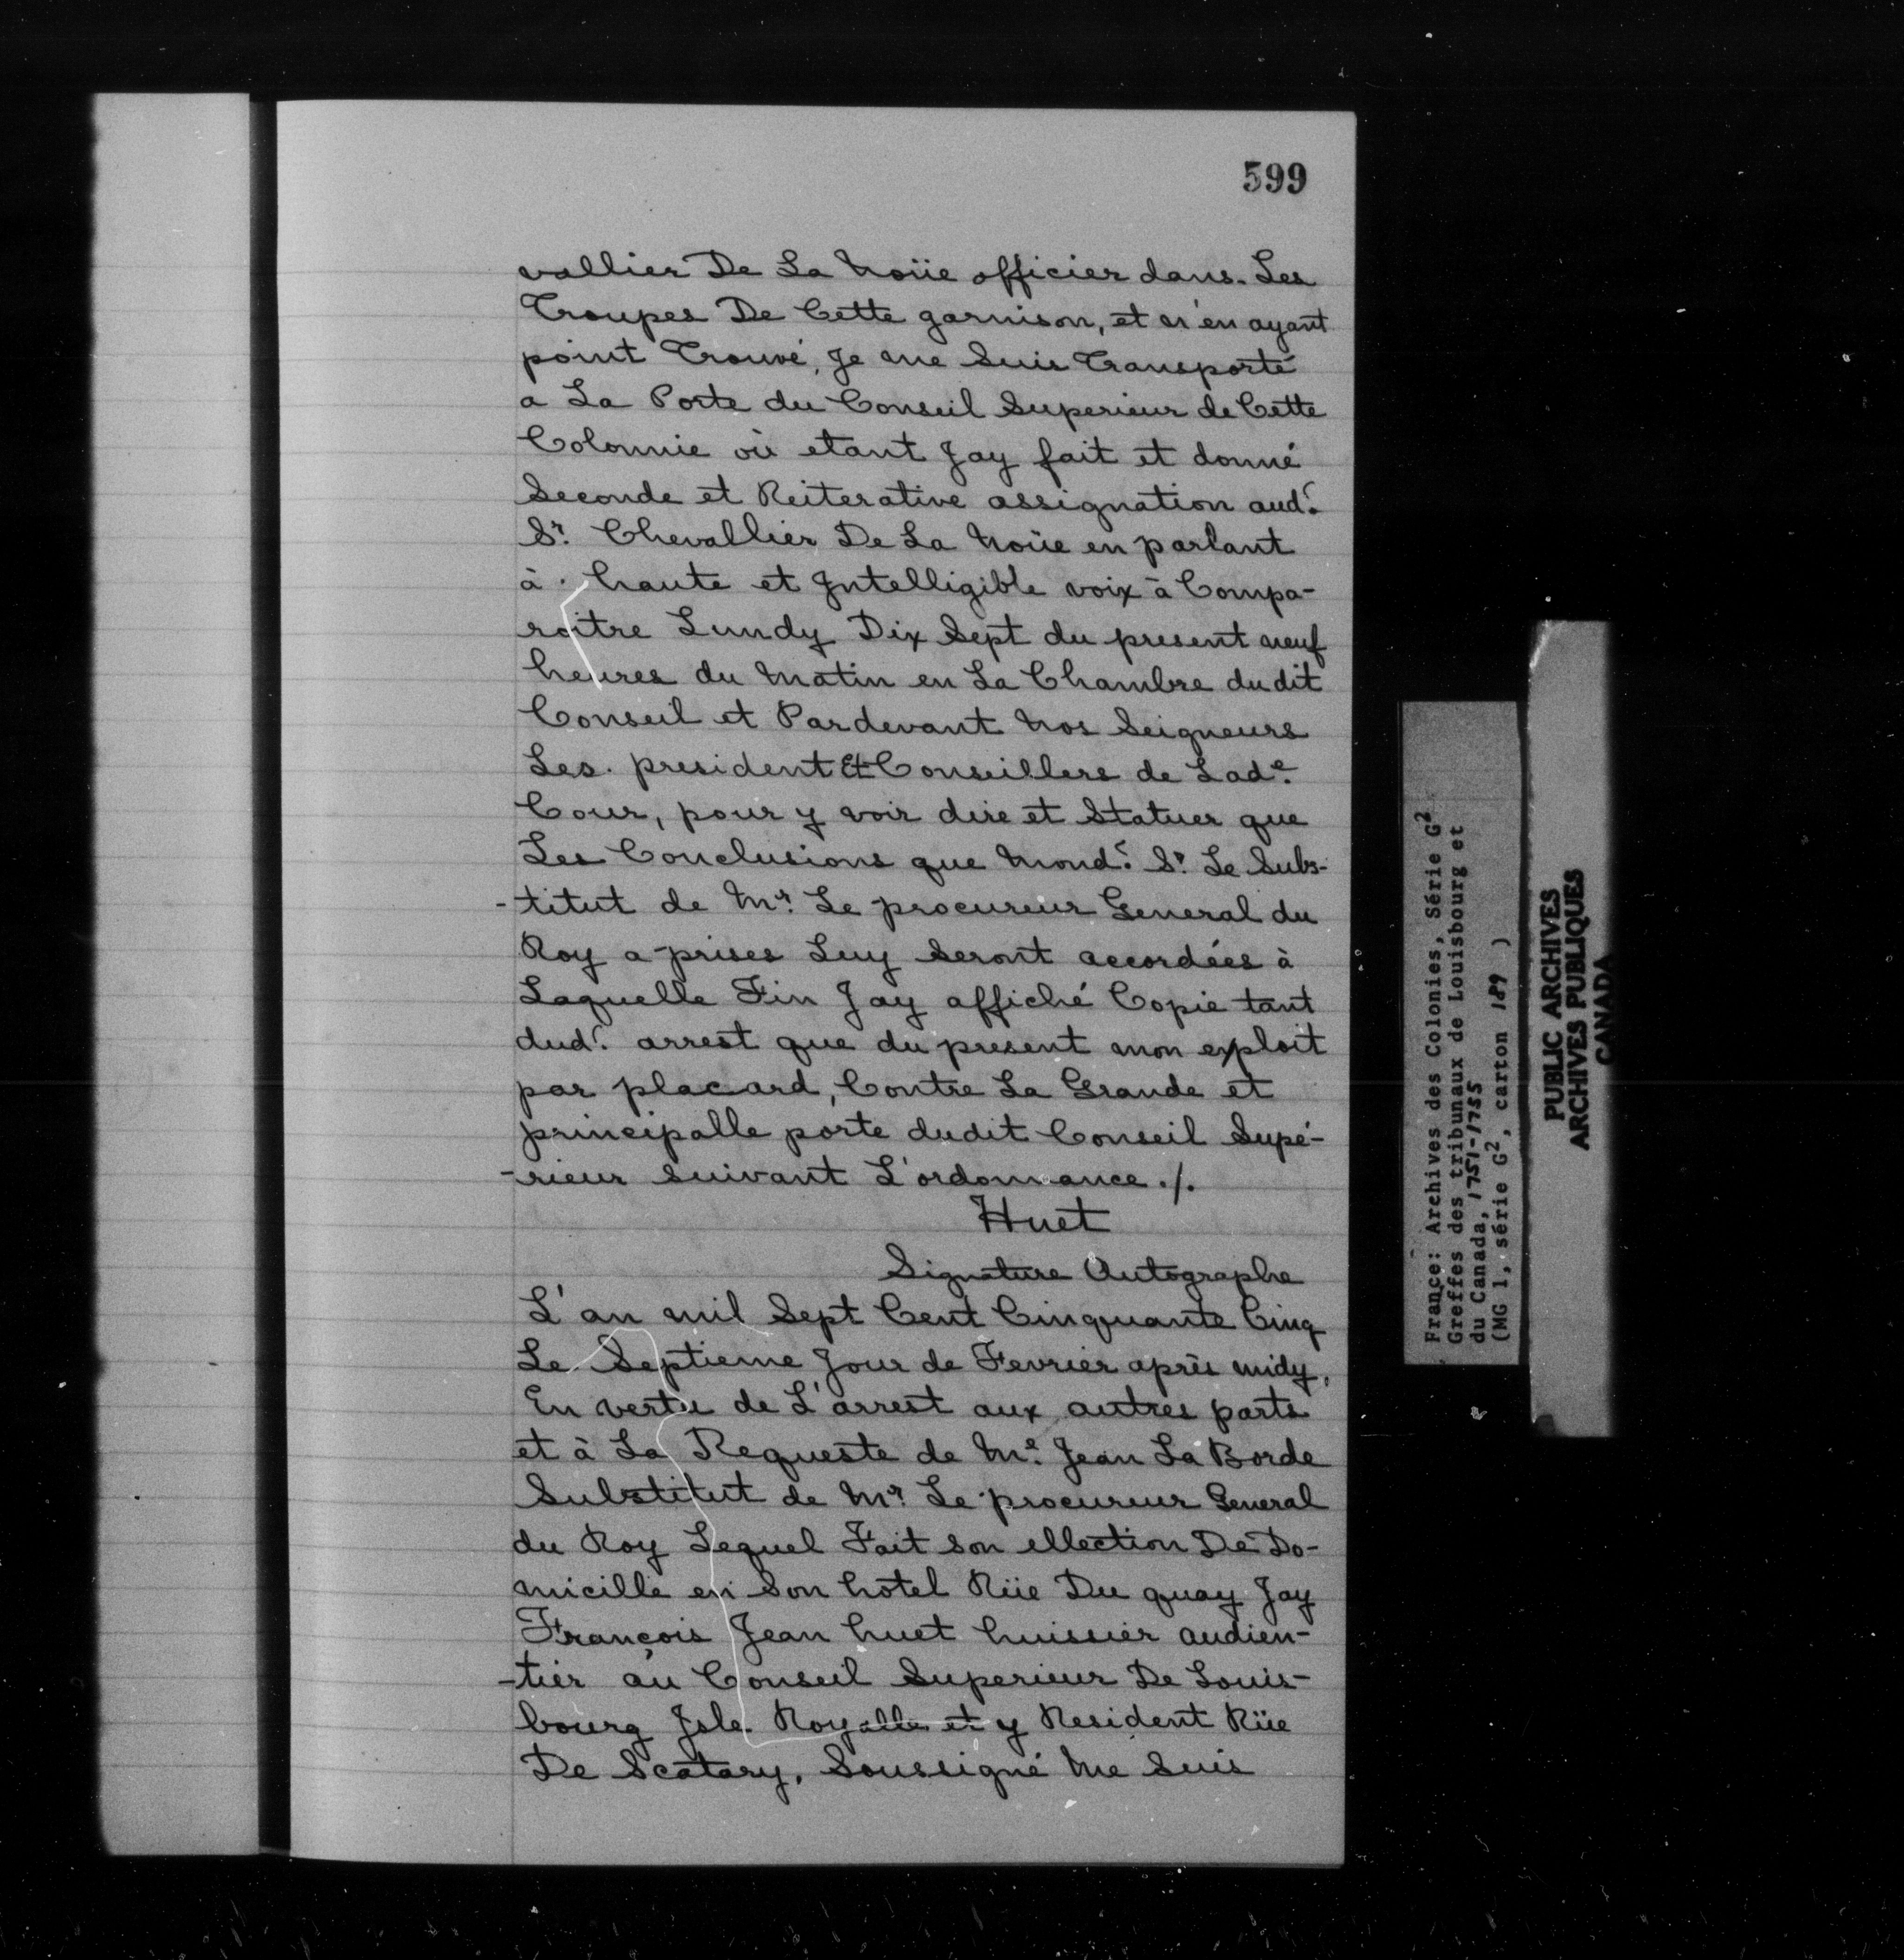 599
vallier De La Noüe officier dans. Les
Troupes De Cette garnison, et n'en ayant
point Trouvé, Je me Suis Transporté
a La Porte du Conseil Superieur de Cette
Colonnie où etant Jay fait et donné
Seconde et Reiterative assignation aud.t
Sr. Chevallier De La Noüe en parlant
à. haute et Intelligible voix à Compa-
roitre Lundy Dix Sept du present neuf
heures du Matin en La Chambre dudit
Conseil et Pardevant Nos Seigneurs
Les. president Et Conseillers de Lade.
Cour, pour y voir dire et Statuer que
Les Conclusions que Mond.t Sr. Le Subs-
-titut de Mr. Le procureur General du
Roy a prises Luy Seront accordées à
Laquelle Fin Jay affiché Copie tant
dud.t arrest que du present mon exploit
par placard, Contre La Grande et
principalle porte dudit Conseil Supé-
-rieur suivant L'ordonnance ./.
Huet
Signature Autographe
L'an mil Sept Cent Cinquante Cinq
Le Septieme Jour de Fevrier après midy,
En vertu de L'arrest aux autres parts
et à La Requeste de Me. Jean La Borde
Substitut de Mr. Le procureur General
du Roy Lequel Fait son ellection De Do-
micille en Son hôtel Rüe Du quay Jay
François Jean huet huissier audien-
-tier au Conseil Superieur De Louis-
bourg Isle Royalle et y Resident Rüe
De Scatary, Soussigné Me Suis
France: Archives des Colonies, Série G2
Greffes des tribunaux de Louisbourg et
du Canada, 1751-1755
(MG 1, série G2, carton 189 )
PUBLIC ARCHIVES
ARCHIVES PUBLIQUES
CANADA